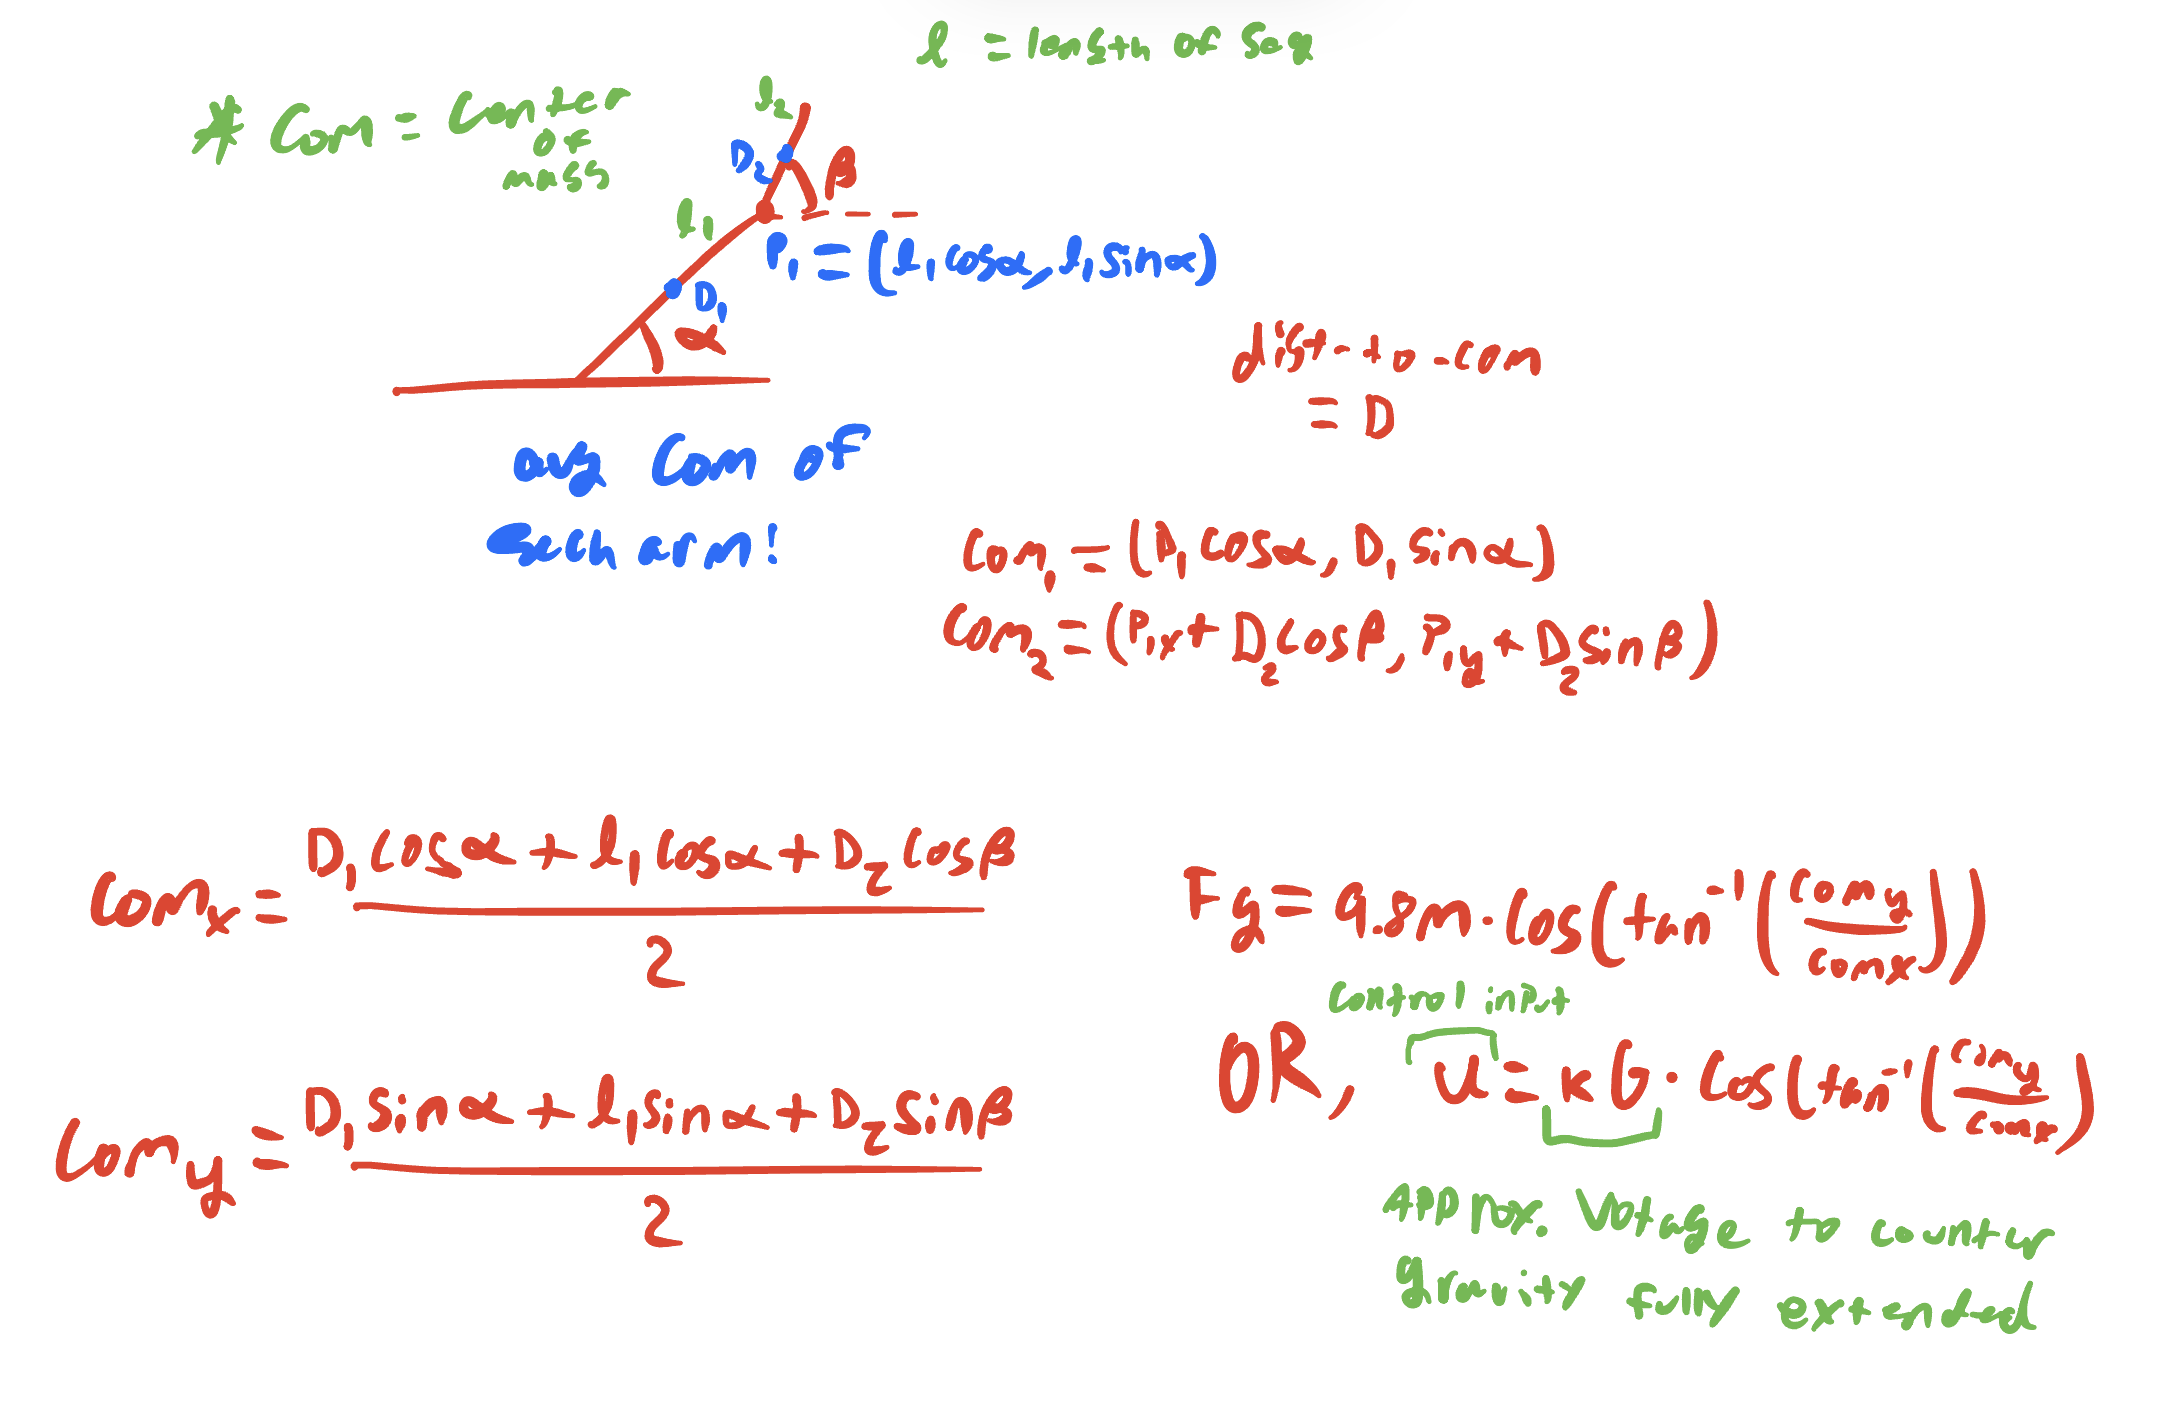 l = length of seg
* Com = Center
of
mass
l₂
D₂
β
l₁
P₁ = (l₁ cosα, l₁ sinα)
D₁
α
dist-to-com
= D
avg Com of
each arm!
Com₁ = (D₁ cosα, D₁ sinα)
Com₂ = (P₁x + D₂ cosβ, P₁y + D₂ sinβ)
Comx = (D₁ cosα + l₁ cosα + D₂ cosβ) / 2
Fg = 9.8m · cos(tan⁻¹(comy / comx))
control input
OR, u = kG · cos(tan⁻¹(comy / comx)
Comy = (D₁ sinα + l₁ sinα + D₂ sinβ) / 2
Approx. Votage to counter
gravity fully extended